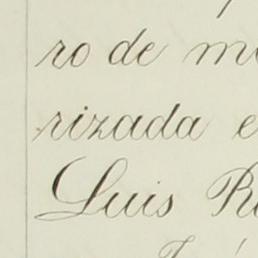 ro de m
rizada e
Luis R